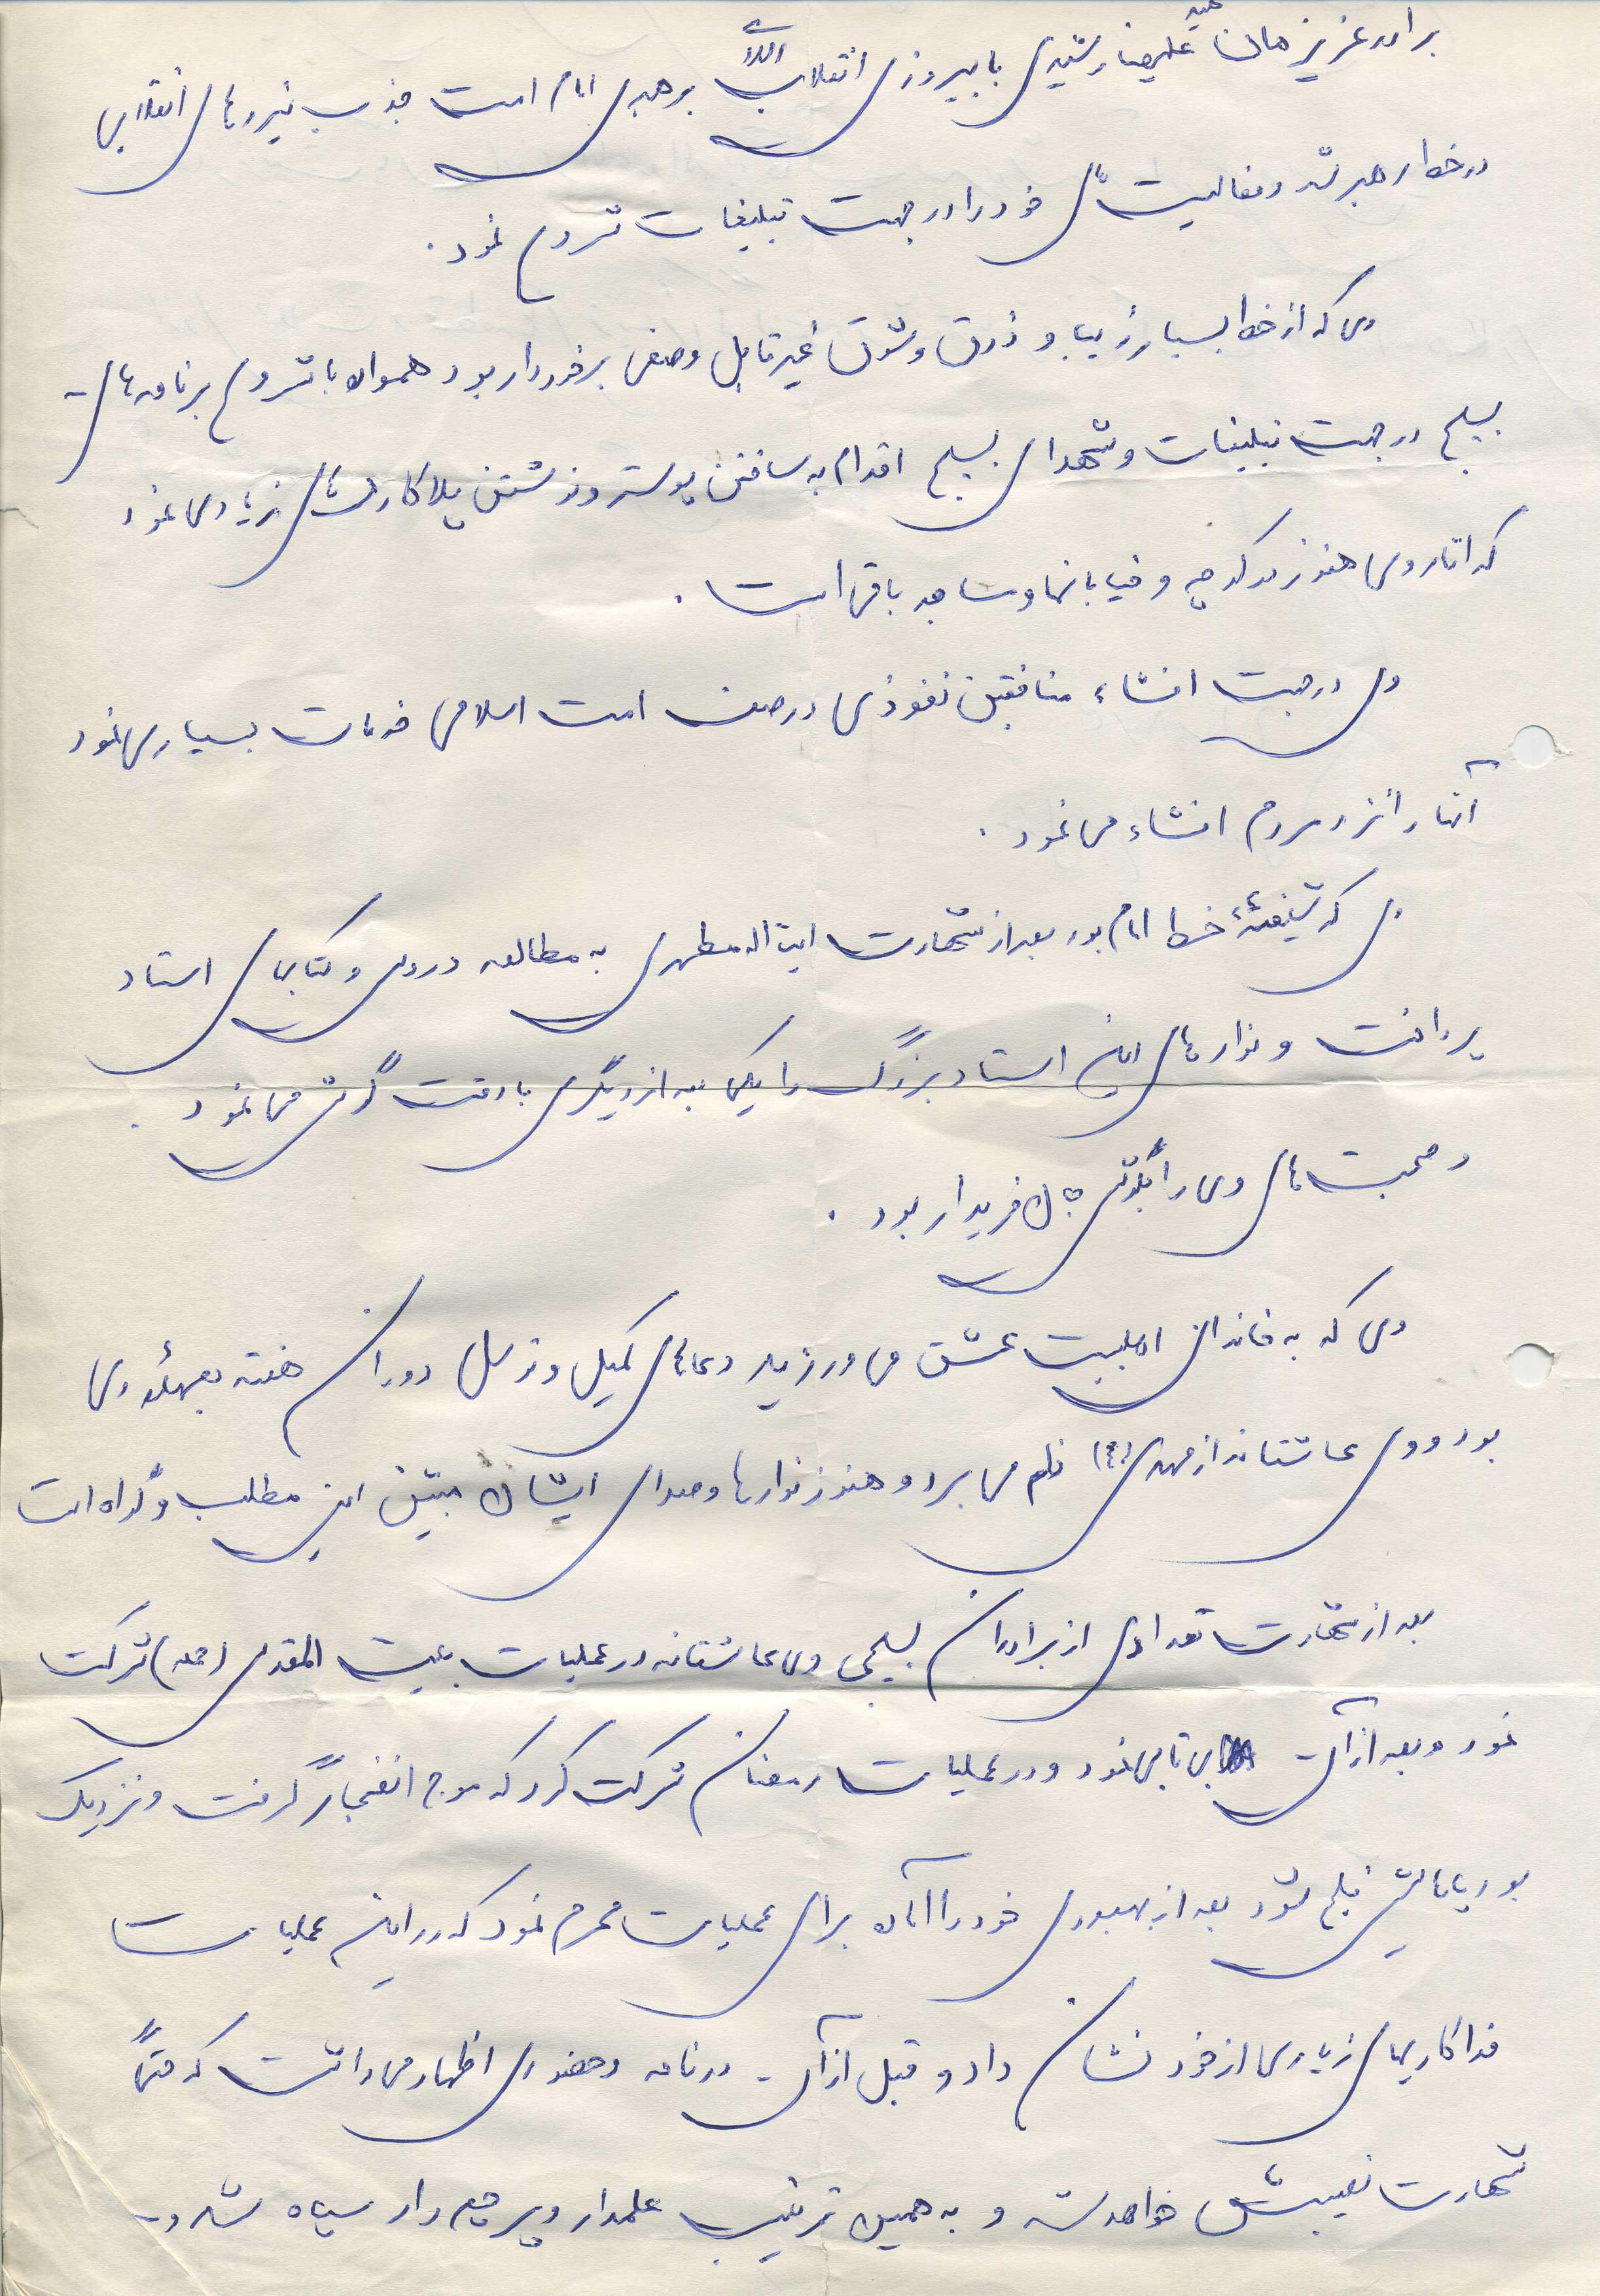 برادر عزیزمان شهید علیرضا رشیدی با پیروزی انقلاب اسلامی برهبری امام امت جذب نیروهای انقلابی
در خط رهبر شد و فعالیت های خود را در جهت تبلیغات شروع نمود.
وی که از خط بسیار زیبا و ذوق و شوق غیر قابل وصفی برخوردار بود همواره با شروع برنامه های
بسیج در جهت تبلیغات و شهدای بسیج اقدام به ساختن پوستر و نوشتن پلاکاردهای زیادی نمود
که آثار وی هنوز در کوچه و خیابانها و مساجد باقی است.
وی در جهت افشاء منافقین نفوذی در صف امت اسلامی خدمات بسیاری نمود
آنها را نزد مردم افشاء می نمود.
وی که شیفته خط امام بود بعد از شهادت آیت اله مطهری به مطالعه دروس و کتابهای استاد
پرداخت و نوارهای این استاد بزرگ را یکی بعد از دیگری با دقت گوش می نمود.
و صحبت های وی را بگوش جان خریدار بود.
وی که به خاندان اهلبیت عشق می ورزید دعاهای کمیل و توسل دوران هفته بعهده وی
بود و وی عاشقانه از مهدی (عج) نام می برد و هنوز نوارها و صدای ایشان مبین این مطلب و گواه است
بعد از شهادت تعدادی از برادران بسیجی وی عاشقانه در عملیات بیت المقدس شرکت
نمود و بعد از آن بی تابی نمود و در عملیات رمضان شرکت کرد که موج انفجار گرفت و نزدیک
بود پاهایش فلج شود بعد از بهبودی خود را آماده برای عملیات محرم نمود که در این عملیات
فداکاریهای زیادی از خود نشان داد و قبل از آن در نامه و حضوری اظهار می داشت که حتماً
شهادت نصیبش خواهد شد و به همین ترتیب علمدار و پرچم دار سپاه شد و